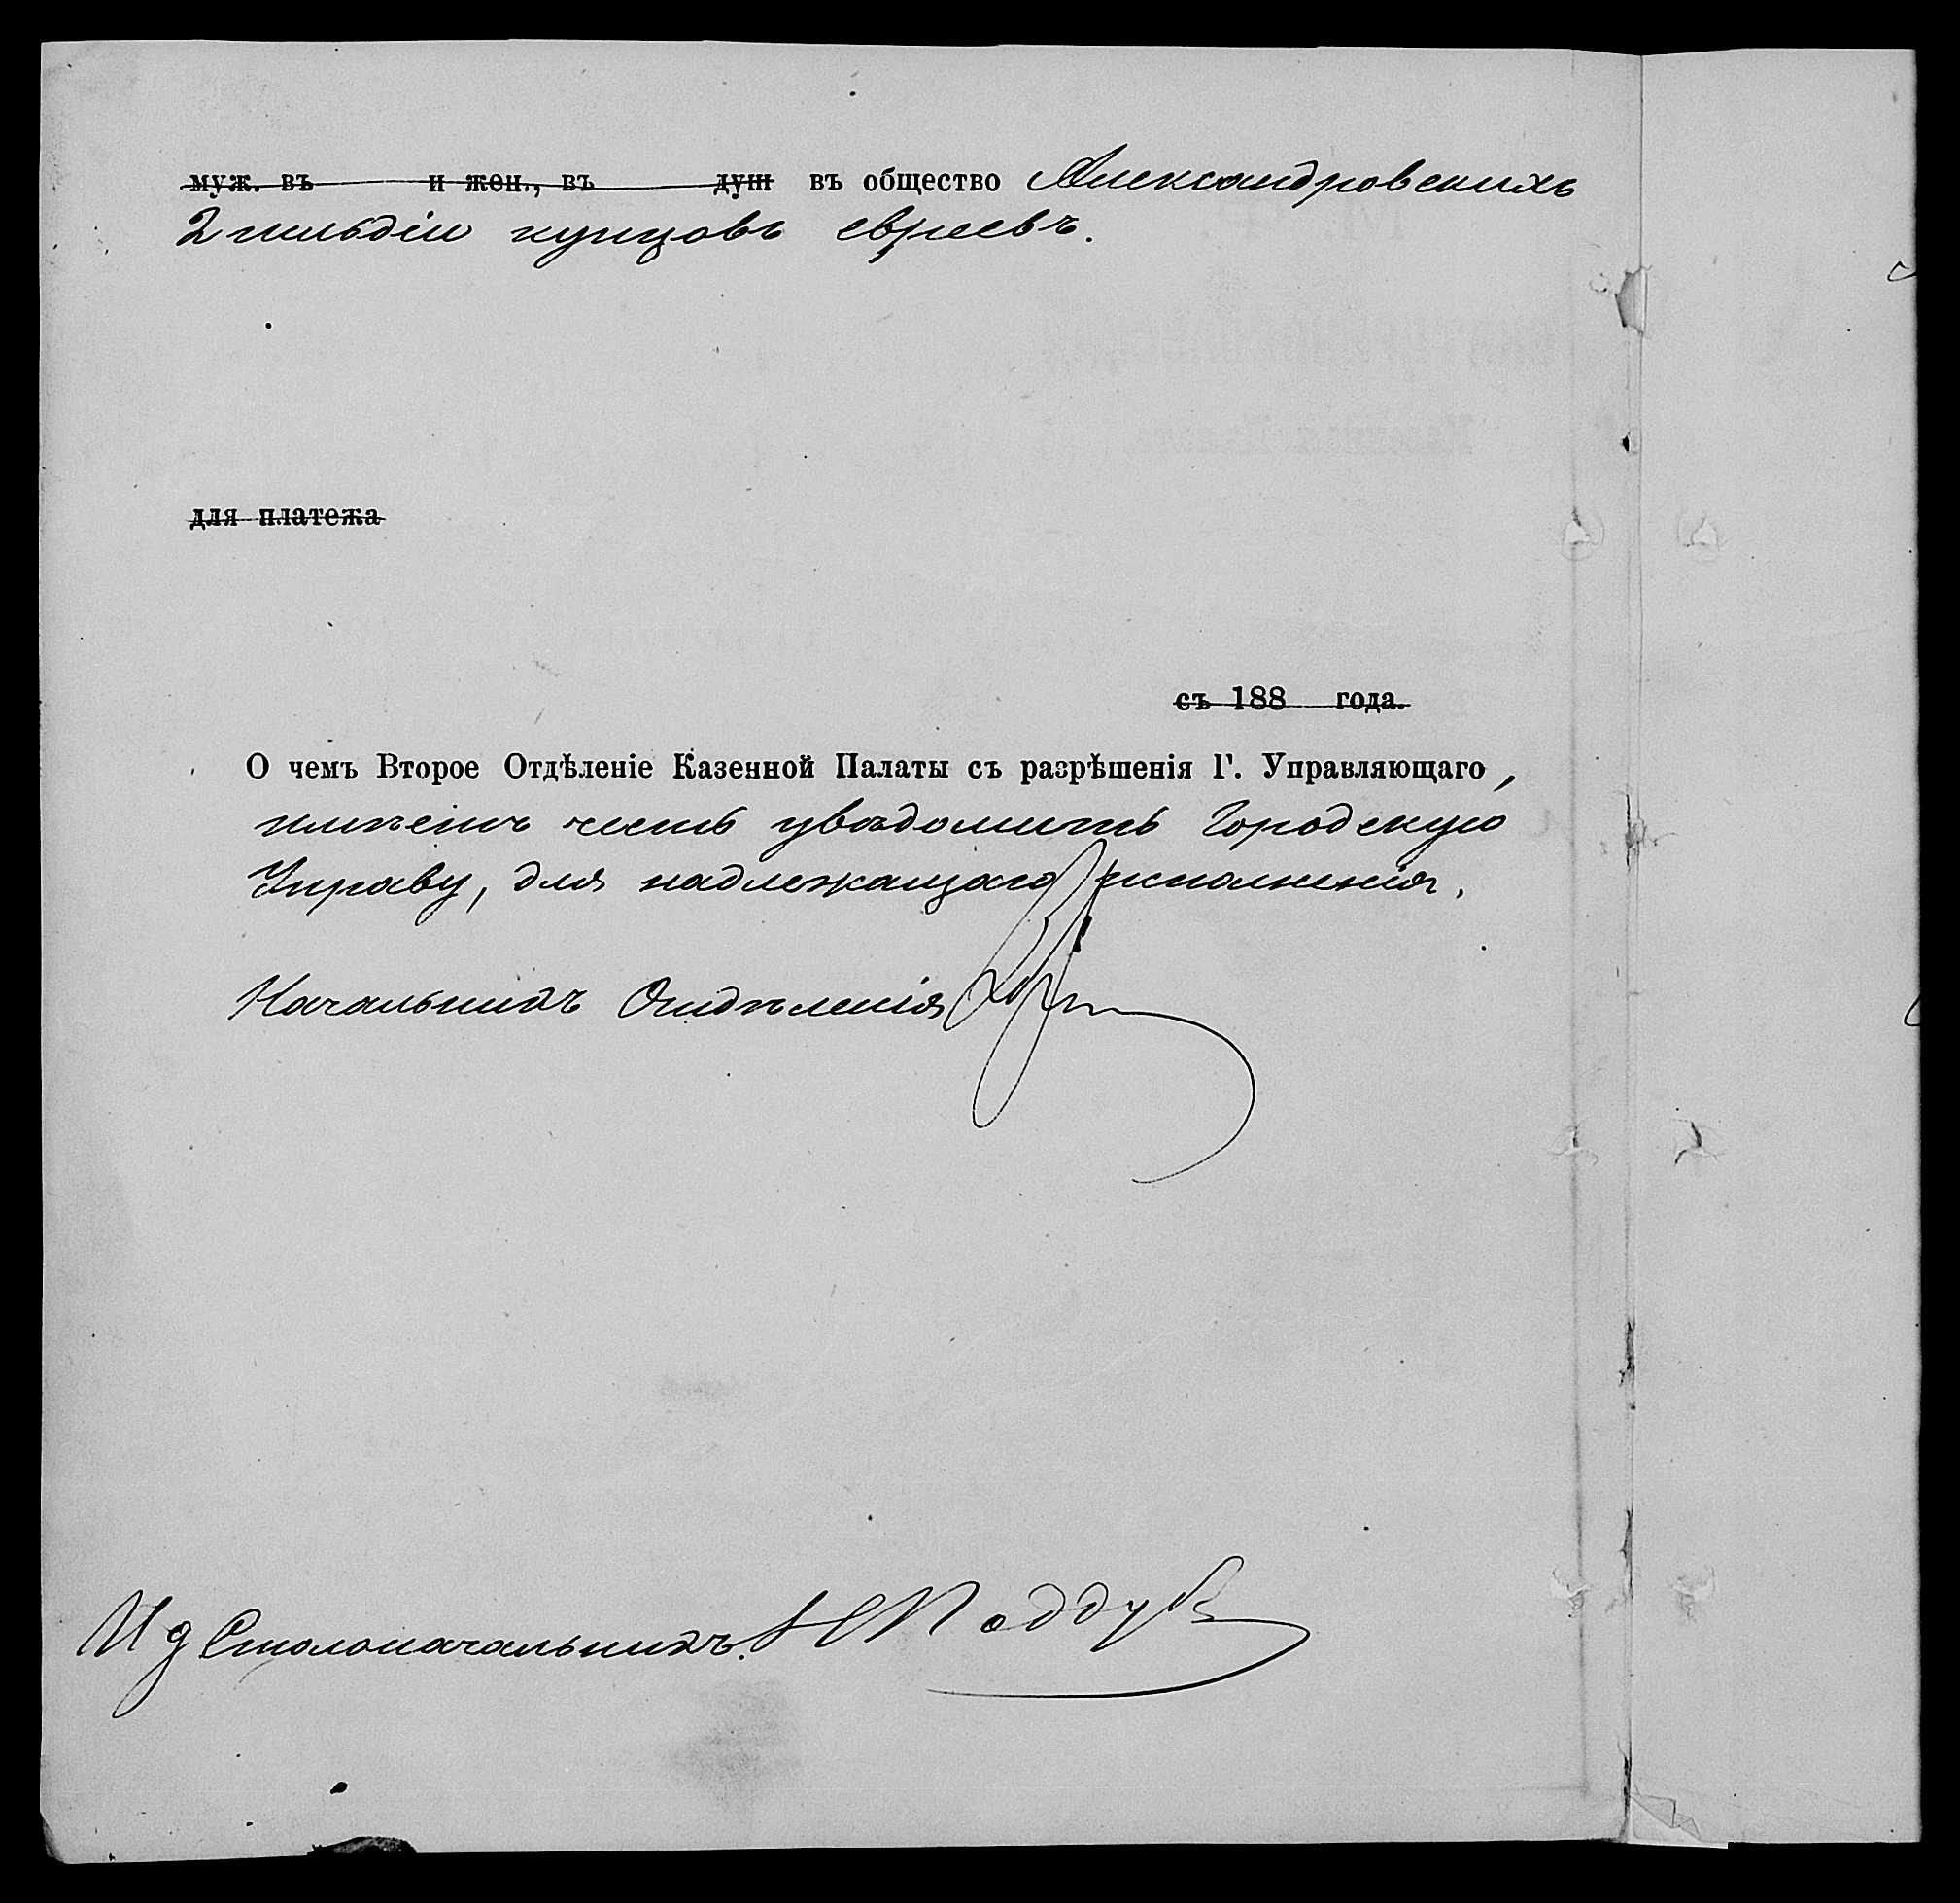 муж. въ и жен., въ душ въ общество Александровскихъ
2 гильдіи купцовъ евреевъ.
для платежа
съ 188 года.
О чемъ Второе Отдѣленіе Казенной Палаты съ разрѣшенія Г. Управляющаго,
имѣетъ честь увѣдомить Городскую
Управу, для надлежащаго исполненія.
Начальникъ Отдѣленія
И д Столоначальникъ.